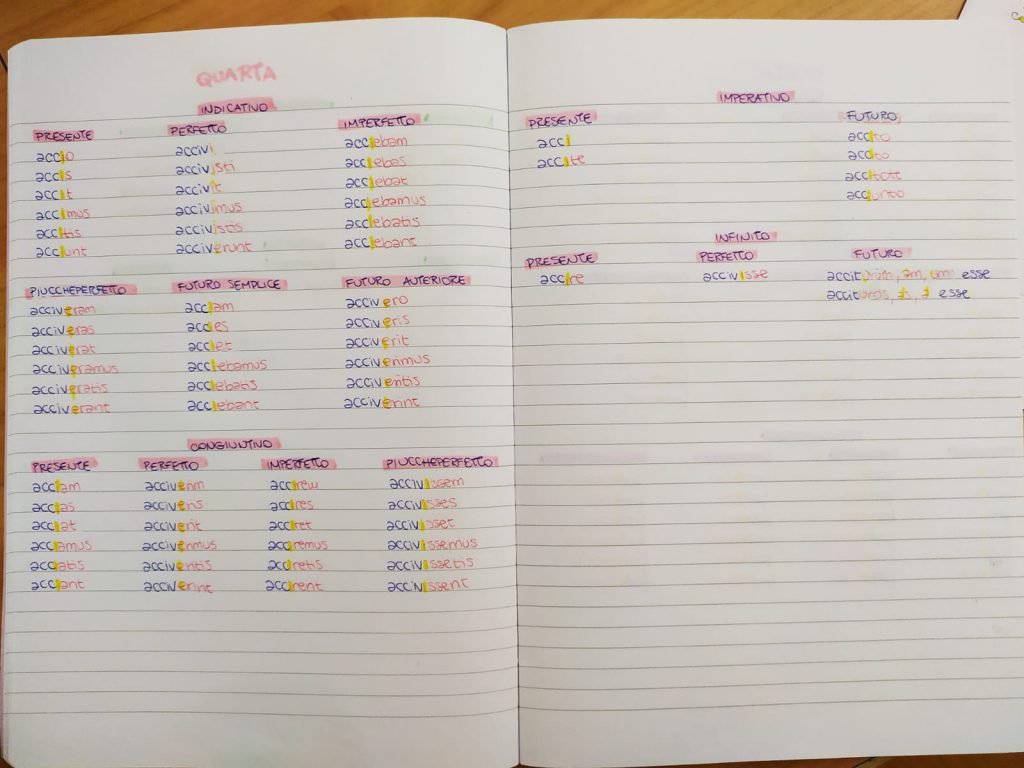 QUARTA
INDICATIVO
PRESENTE PERFETTO IMPERFETTO
accio accivi acciebam
accis accivisti acciebas
accit accivit acciebat
accimus accivimus acciebamus
accitis accivistis acciebatis
acciunt acciverunt acciebant
PIUCCHEPERFETTO FUTURO SEMPLICE FUTURO ANTERIORE
acciveram acciam accivero
acciveras accies acciveris
acciverat acciet acciverit
acciveramus acciebamus acciverimus
acciveratis acciebatis acciveritis
acciverant acciebant acciverint
CONGIUNTIVO
PRESENTE PERFETTO IMPERFETTO PIUCCHEPERFETTO
acciam acciverim accirem accivissem
accias acciveris accires accivisses
acciat acciverit acciret accivisset
acciamus acciverimus acciremus accivissemus
acciatis acciveritis acciretis accivissetis
acciant acciverint accirent accivissent
IMPERATIVO
PRESENTE FUTURO
acci accito
accite accito
accitote
acciunto
INFINITO
PRESENTE PERFETTO FUTURO
accire accivisse acciturum, am, um esse
accituros, as, a esse